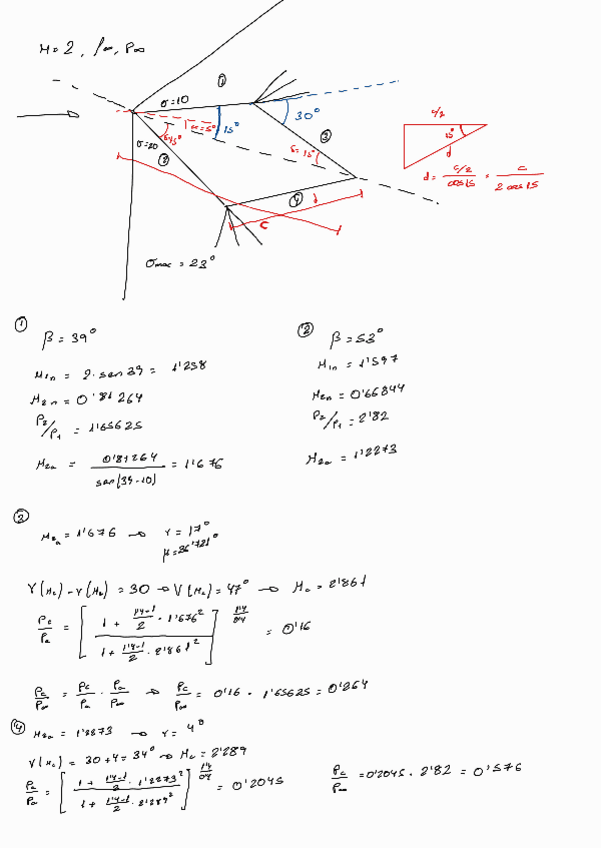 M = 2 , ρ∞, P∞
①
σ=10
α=5°
15°
30°
δ=15°
σ=20
②
③
δ=15°
④
d
c
σmax = 23°
c/2
15°
d
d = c/2 / cos15 = c / 2 cos15
①
β = 39°
M1n = 2·sen 39 = 1'258
M2n = 0'81264
P2/P1 = 1'65625
M2a = 0'81264 / sen(39-10) = 1'676
②
β = 53°
M1n = 1'597
M2n = 0'66844
P2/P1 = 2'82
M2a = 1'2273
③
M2a = 1'676 → ν = 17°
μ = 36'721°
ν(Mc) - ν(Mb) = 30 → ν(Mc) = 47° → Mc = 2'861
Pc/Pa = [ 1 + 1'4-1/2 · 1'676² / 1 + 1'4-1/2 · 2'861² ]^1'4/0'4 = 0'16
Pc/P∞ = Pc/Pa · Pa/P∞ → Pc/P∞ = 0'16 · 1'65625 = 0'264
④
M2a = 1'2273 → ν = 4°
ν(Mc) = 30 + 4 = 34° → Mc = 2'289
Pc/Pa = [ 1 + 1'4-1/2 · 1'2273² / 1 + 1'4-1/2 · 2'289² ]^1'4/0'4 = 0'2045
Pc/P∞ = 0'2045 · 2'82 = 0'576